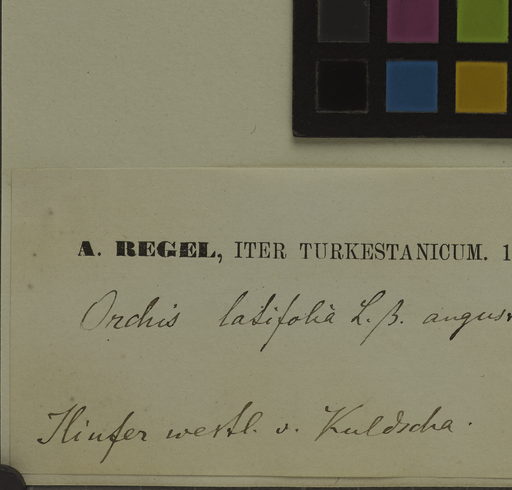 A. REGEL, ITER TURKESTANICUM. 1
Orchis latifolia L. β. angus
Iliufer westl. v. Kuldscha.